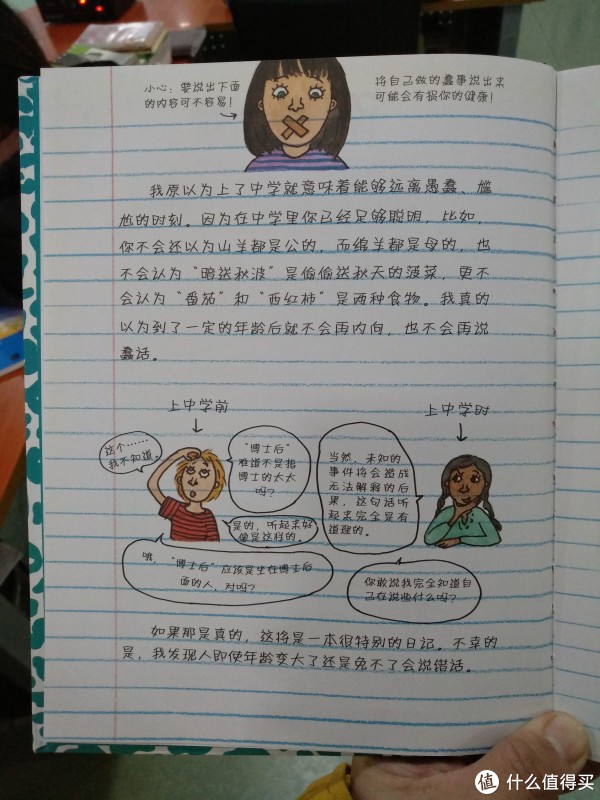 小心：要说出下面
的内容可不容易！
将自己做的蠢事说出来
可能会有损你的健康！
我原以为上了中学就意味着能够远离愚蠢、尴
尬的时刻。因为在中学里你已经足够聪明，比如，
你不会还以为山羊都是公的，而绵羊都是母的，也
不会认为“暗送秋波”是偷偷送秋天的菠菜，更不
会认为“番茄”和“西红柿”是两种食物。我真的
以为到了一定的年龄后就不会再内向，也不会再说
蠢话。
上中学前
上中学时
这个……
我不知道。
“博士后”
难道不是指
博士的太太
吗？
是的，听起来好
像是这样的。
哦，“博士后”应该是坐在博士后
面的人，对吗？
当然，未知的
事件将会造成
无法解释的后
果，这句话听
起来完全是有
道理的。
你敢说我完全知道自
己在说些什么吗？
如果那是真的，这将是一本很特别的日记。不幸的
是，我发现人即使年龄变大了还是免不了会说错话。
值 什么值得买